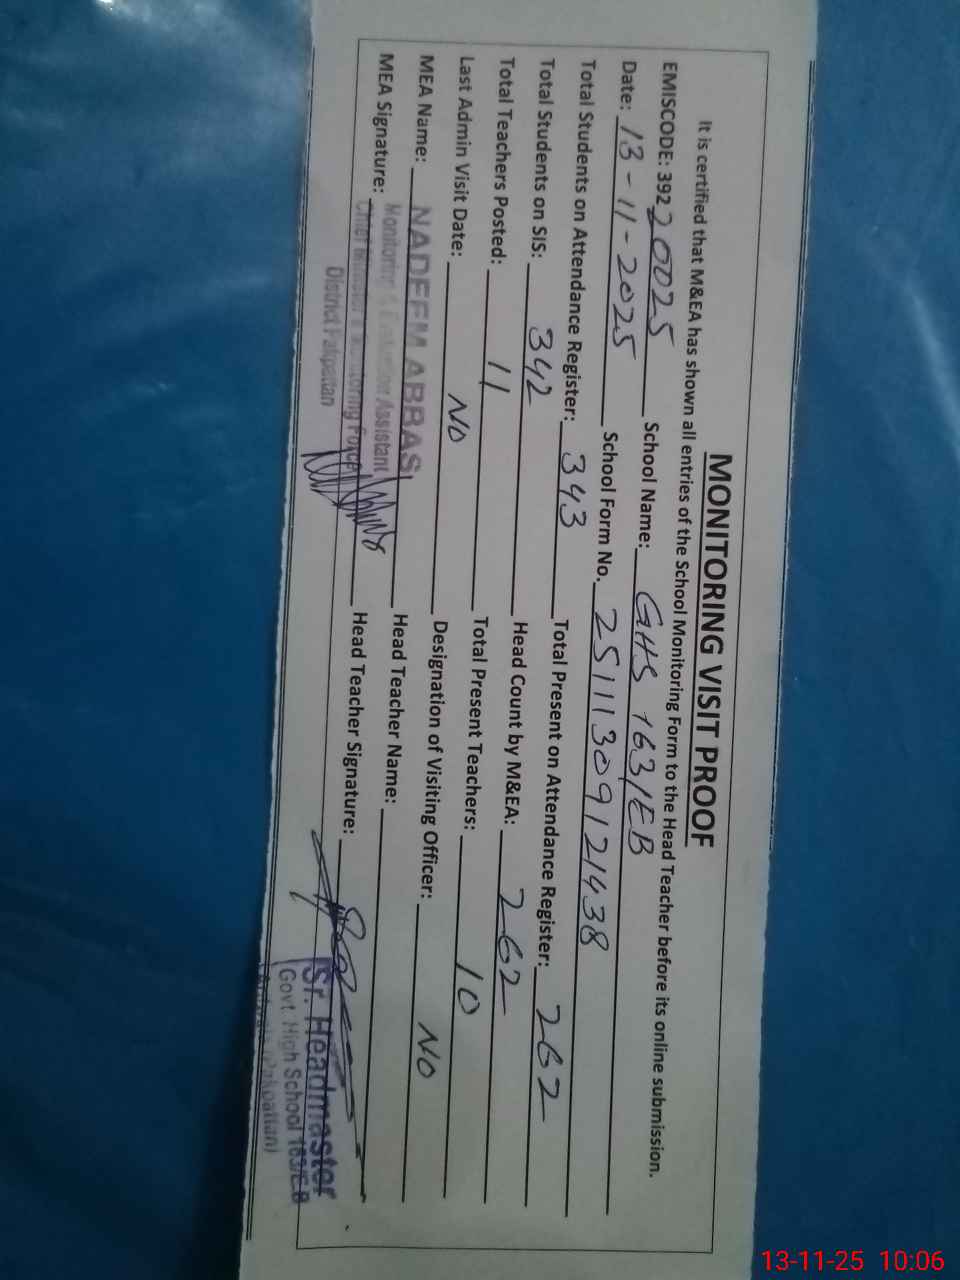 MONITORING VISIT PROOF
It is certified that M&EA has shown all entries of the School Monitoring Form to the Head Teacher before its online submission.
EMISCODE: 39220025 School Name: GHS 163/EB
Date: 13-11-2025 School Form No. 25111309121438
Total Students on Attendance Register: 343 Total Present on Attendance Register: 262
Total Students on SIS: 342 Head Count by M&EA: 262
Total Teachers Posted: 11 Total Present Teachers: 10
Last Admin Visit Date: NO Designation of Visiting Officer: NO
MEA Name: NADEEM ABBAS Head Teacher Name:
Monitoring & Evaluation Assistant
MEA Signature: Head Teacher Signature:
Chief Minister's Monitoring Force
District Pakpattan
Sr. Headmaster
Govt. High School 163/E.B
(Pakpattan)
13-11-25 10:06